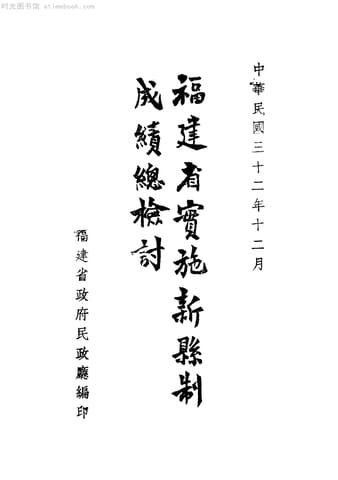 时光图书馆 - etimebook.com
中華民國三十二年十二月
福建省實施新縣制
成績總檢討
福建省政府民政廳編印